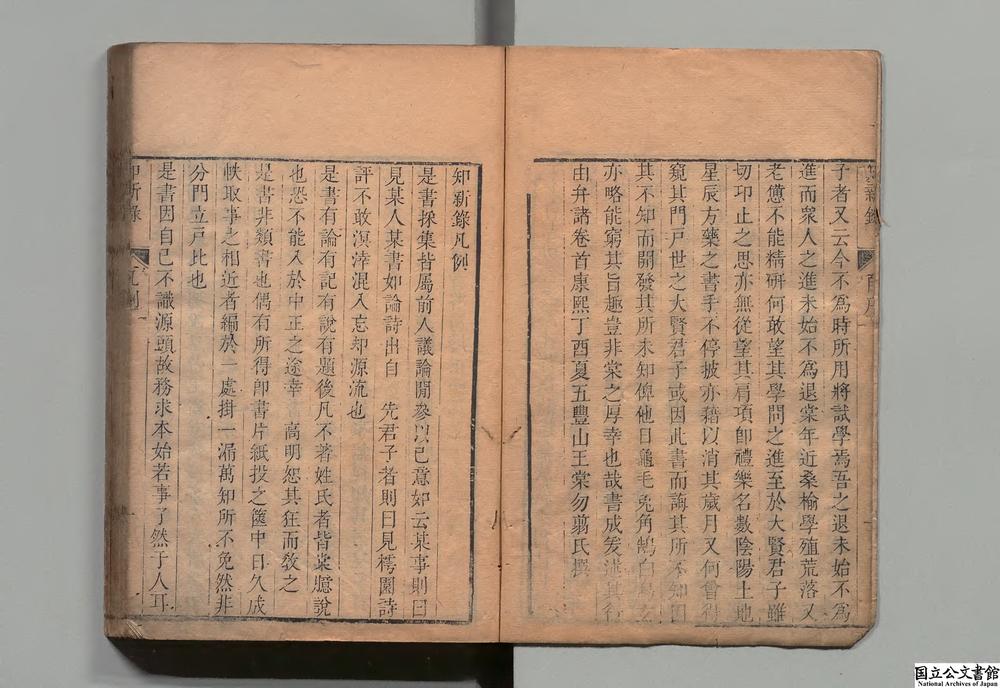 子者又云今不為時所用將試學焉吾之退未始不為
進而衆人之進未始不為退棠年近桑榆學殖荒落又
老憊不能精研何敢望其學問之進至於大賢君子雖
切卬止之思亦無從望其肩項卽禮樂名數陰陽土地
星辰方藥之書手不停披亦藉以消其歲月又何曾得
窺其門戸世之大賢君子或因此書而誨其所不知因
其不知而開發其所未知俾他日龜毛兔角鵠白烏玄
亦略能窮其旨趣豈非棠之厚幸也哉書成爰述其行
由弁諸卷首康熙丁酉夏五豐山王棠勿翦氏撰
知新錄凡例
是書採集皆屬前人議論閒參以己意如云某事則曰
見某人某書如論詩出自　先君子者則曰見樗園詩
評不敢溟涬混入忘却源流也
是書有論有記有說有題後凡不著姓氏者皆棠臆說
也恐不能入於中正之途幸　高明恕其狂而教之
是書非類書也偶有所得卽書片紙投之篋中日久成
帙取事之相近者編於一處掛一漏萬知所不免然非
分門立戸比也
是書因自己不識源頭故務求本始若事了然于人耳
知新錄
凡例
一
国立公文書館
National Archives of Japan